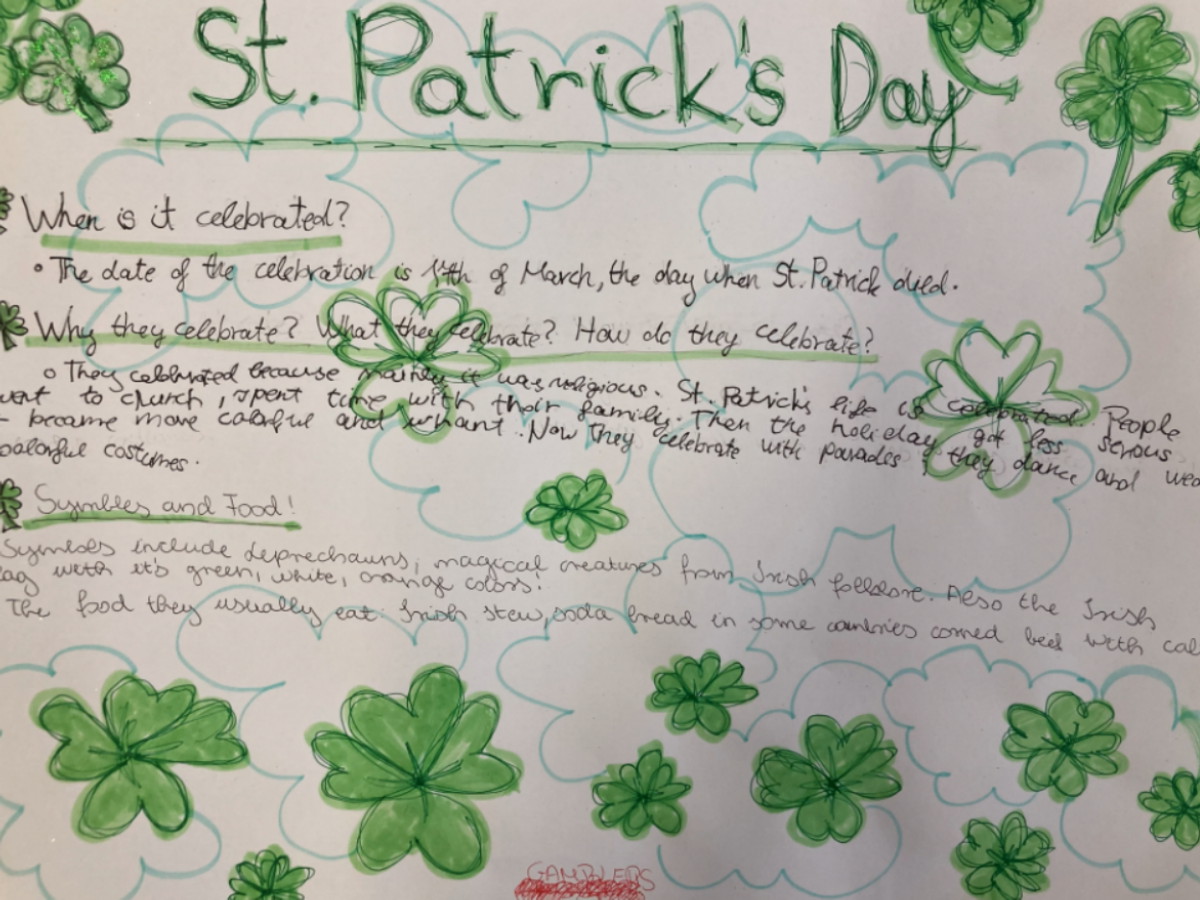 St. Patrick's Day
When is it celebrated?
• The date of the celebration is 17th of March, the day when St. Patrick died.
Why they celebrate? What they celebrate? How do they celebrate?
o They celebrated because mainly it was religious. St. Patrick's life is celebrated. People
went to church, spent time with their family. Then the holiday got less serious
became more colorful and Now They celebrate with parades, they dance and wea
colorful costumes.
Symbles and Food!
Symbols include leprechauns, magical creatures from Irish folklore. Also the Irish
lag with it's green, white, orange colors!
The food they usually eat Irish stew, soda bread in some countries corned beef with
GAMBLERS